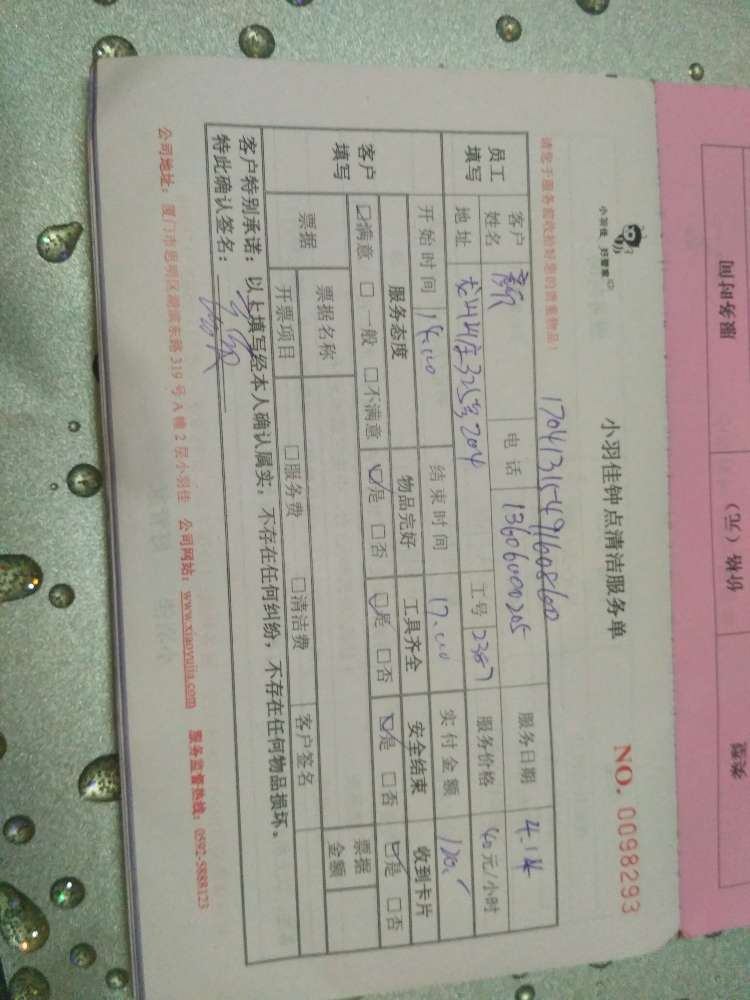 小羽佳 好管家
小羽佳钟点清洁服务单
NO. 0098293
请您于服务前收拾好您的贵重物品!
17041315491608600
员工填写
客户姓名
电话 13606000205
服务日期 4.14
地址 龙山山庄325号204
工号 2387
服务价格 40元/小时
开始时间 14.00
结束时间 17.00
实付金额 120.
客户填写
服务态度 物品完好 工具齐全 安全结束 收到卡片
☑满意 □一般 □不满意 ☑是 □否 ☑是 □否 ☑是 □否 ☑是 □否
票据
票据名称
票据金额
开票项目 □服务费 □清洁费 客户签名
客户特别承诺:以上填写经本人确认属实,不存在任何纠纷,不存在任何物品损坏。
特此确认签名:
公司地址:厦门市思明区湖滨东路319号A幢2层小羽佳 公司网站:www.xiaoyujia.com 服务监督热线:0592-5888123
服务时间
价格(元)